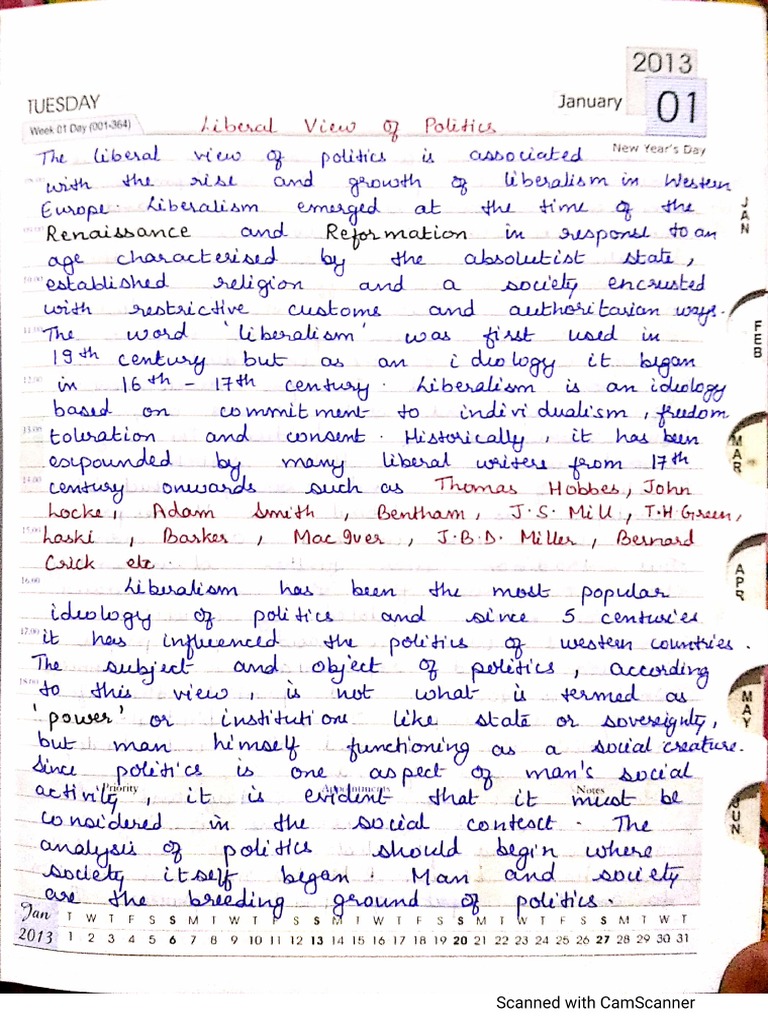 2013
TUESDAY
January 01
Week 01 Day (001-364)
Liberal View of Politics
New Year's Day
The liberal view of politics is associated
with the rise and growth of liberalism in Western
Europe. Liberalism emerged at the time of the
Renaissance and Reformation in response to an
age characterised by the absolutist state,
established religion and a society encrusted
with restrictive customs and authoritarian ways.
The word 'liberalism' was first used in
19th century but as an ideology it began
in 16th - 17th century. Liberalism is an ideology
based on commitment to individualism, freedom
toleration and consent. Historically, it has been
expounded by many liberal writers from 17th
century onwards such as Thomas Hobbes, John
Locke, Adam Smith, Bentham, J.S. Mill, T.H. Green,
Laski, Barker, MacIver, J.B.D. Miller, Bernard
Crick etc.
Liberalism has been the most popular
ideology of politics and since 5 centuries
it has influenced the politics of western countries.
The subject and object of politics, according
to this view, is not what is termed as
'power' or institutions like state or sovereignty,
but man himself functioning as a social creature.
Since politics is one aspect of man's social
Priority Appointments Notes
activity, it is evident that it must be
considered in the social context. The
analysis of politics should begin where
society itself began. Man and society
are the breeding ground of politics.
Jan T W T F S S M T W T F S S M T W T F S S M T W T F S S M T W T
2013 1 2 3 4 5 6 7 8 9 10 11 12 13 14 15 16 17 18 19 20 21 22 23 24 25 26 27 28 29 30 31
JAN
FEB
MAR
APR
MAY
JUN
Scanned with CamScanner